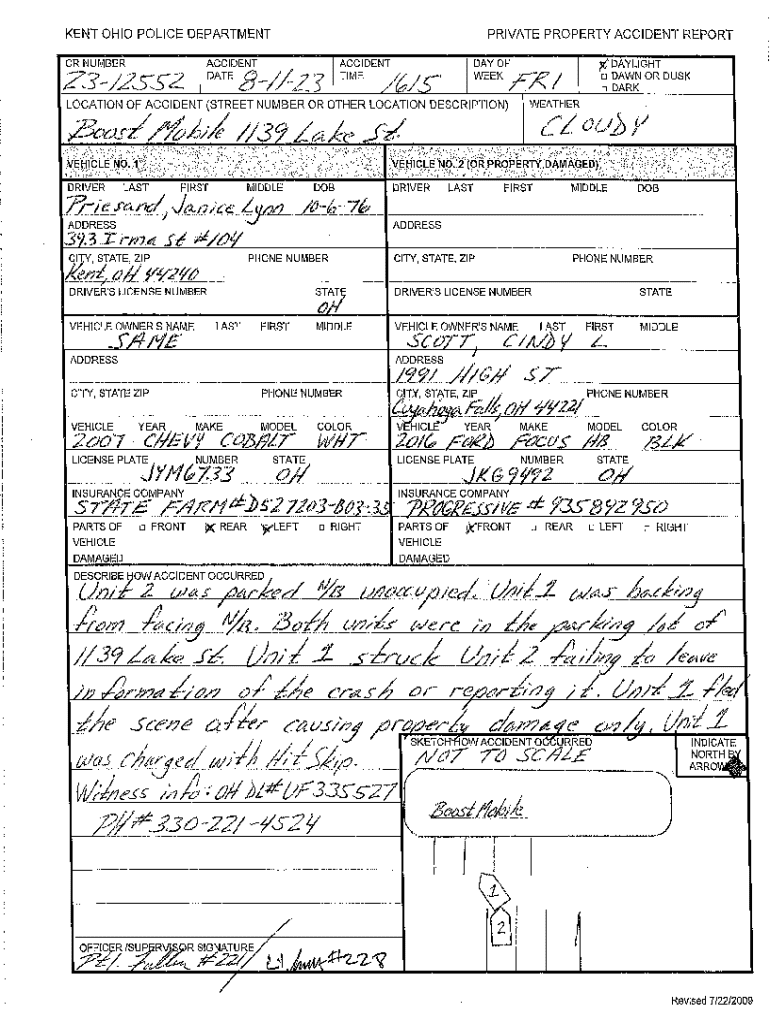 KENT OHIO POLICE DEPARTMENT PRIVATE PROPERTY ACCIDENT REPORT
CR NUMBER ACCIDENT DATE ACCIDENT TIME DAY OF WEEK DAYLIGHT
23-12552 8-11-23 1615 FRI DAWN OR DUSK
DARK
LOCATION OF ACCIDENT (STREET NUMBER OR OTHER LOCATION DESCRIPTION) WEATHER
Boost Mobile 1139 Lake St. CLOUDY
VEHICLE NO. 1 VEHICLE NO. 2 (OR PROPERTY DAMAGED)
DRIVER LAST FIRST MIDDLE DOB DRIVER LAST FIRST MIDDLE DOB
Priesand, Janice Lynn 10-6-76
ADDRESS ADDRESS
393 Irma St #104
CITY, STATE, ZIP PHONE NUMBER CITY, STATE, ZIP PHONE NUMBER
Kent, OH 44240
DRIVER'S LICENSE NUMBER STATE DRIVER'S LICENSE NUMBER STATE
OH
VEHICLE OWNER'S NAME LAST FIRST MIDDLE VEHICLE OWNER'S NAME LAST FIRST MIDDLE
SAME SCOTT, CINDY L
ADDRESS ADDRESS
1991 HIGH ST
CITY, STATE ZIP PHONE NUMBER CITY, STATE, ZIP PHONE NUMBER
Cuyahoga Falls, OH 44221
VEHICLE YEAR MAKE MODEL COLOR VEHICLE YEAR MAKE MODEL COLOR
2007 CHEVY COBALT WHT 2016 FORD FOCUS HB BLK
LICENSE PLATE NUMBER STATE LICENSE PLATE NUMBER STATE
JYM6733 OH JKG9492 OH
INSURANCE COMPANY INSURANCE COMPANY
STATE FARM #D527203-B03-35 PROGRESSIVE # 935892950
PARTS OF VEHICLE DAMAGED FRONT REAR LEFT RIGHT PARTS OF VEHICLE DAMAGED FRONT REAR LEFT RIGHT
DESCRIBE HOW ACCIDENT OCCURRED
Unit 2 was parked N/B unoccupied. Unit 1 was backing
from facing N/B. Both units were in the parking lot of
1139 Lake St. Unit 1 struck Unit 2 failing to leave
information of the crash or reporting it. Unit 1 fled
the scene after causing property damage only. Unit 1
was charged with Hit Skip.
Witness info: OH DL# UF335527
PH# 330-221-4524
SKETCH HOW ACCIDENT OCCURRED INDICATE NORTH BY ARROW
NOT TO SCALE
Boost Mobile
1
2
OFFICER /SUPERVISOR SIGNATURE
Ptl. Fuller #221 / #228
Revised 7/22/2009